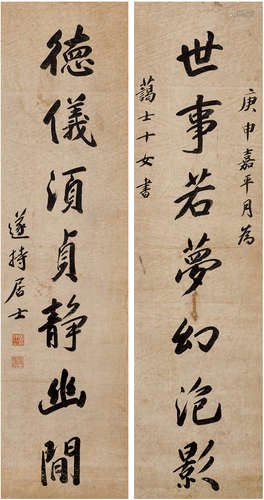 庚申嘉平月為
世事若夢幻泡影
藹士十女書
德儀須貞静幽閒
遂持居士